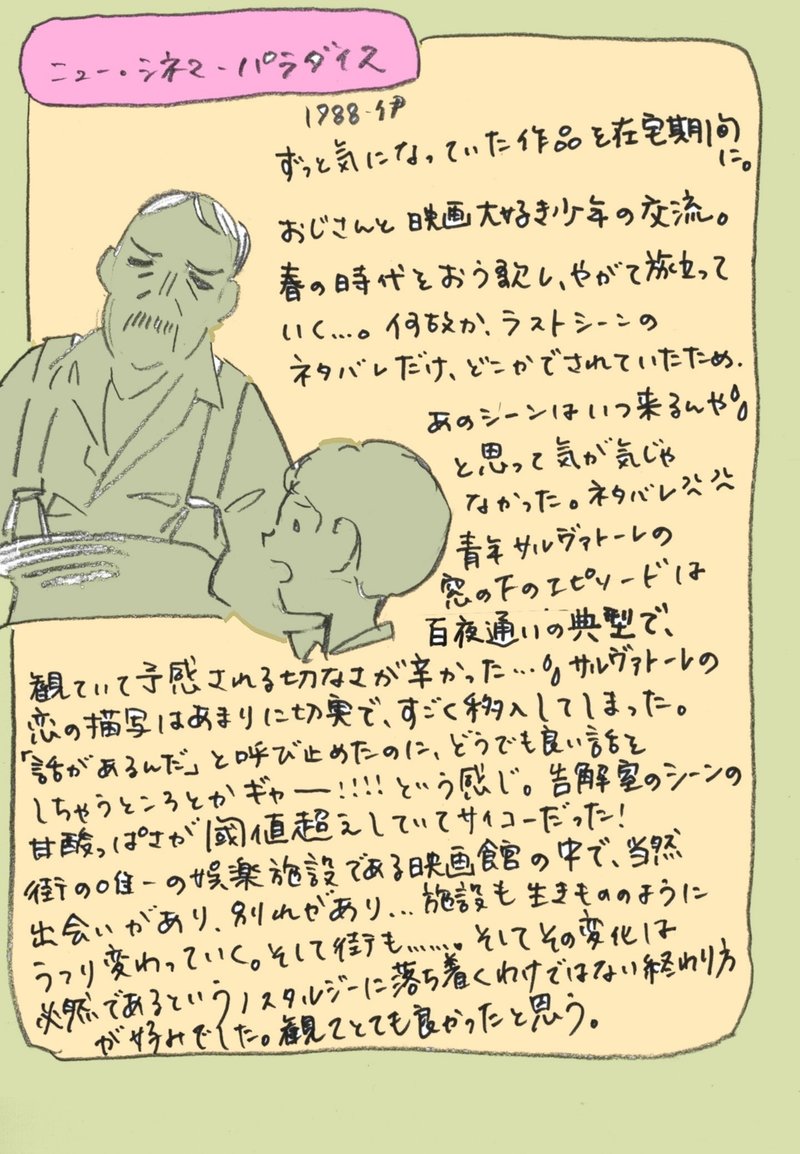 ニュー・シネマ・パラダイス
1988-伊
ずっと気になっていた作品を在宅期間
に。
おじさんと映画大好き少年の交流。
春の時代をおう歌し、やがて旅立って
いく…。何故か、ラストシーンの
ネタバレだけ、どこかでされていたため、
あのシーンはいつ来るんや
と思って気が気じゃ
なかった。ネタバレ
青年サルヴァトーレの
窓の下のエピソードは
百夜通いの典型で、
観ていて予感される切なさが辛かった…。サルヴァトーレの
恋の描写はあまりに切実で、すごく移入してしまった。
「話があるんだ」と呼び止めたのに、どうでも良い話を
しちゃうところとかギャー!!!!という感じ。告解室のシーンの
甘酸っぱさが閾値超えしていてサイコーだった!
街の唯一の娯楽施設である映画館の中で、当然
出会いがあり、別れがあり…施設も生きもののように
うつり変わっていく。そして街も……。そしてその変化は
必然であるというノスタルジーに落ち着くわけではない終わり方
が好みでした。観てとても良かったと思う。